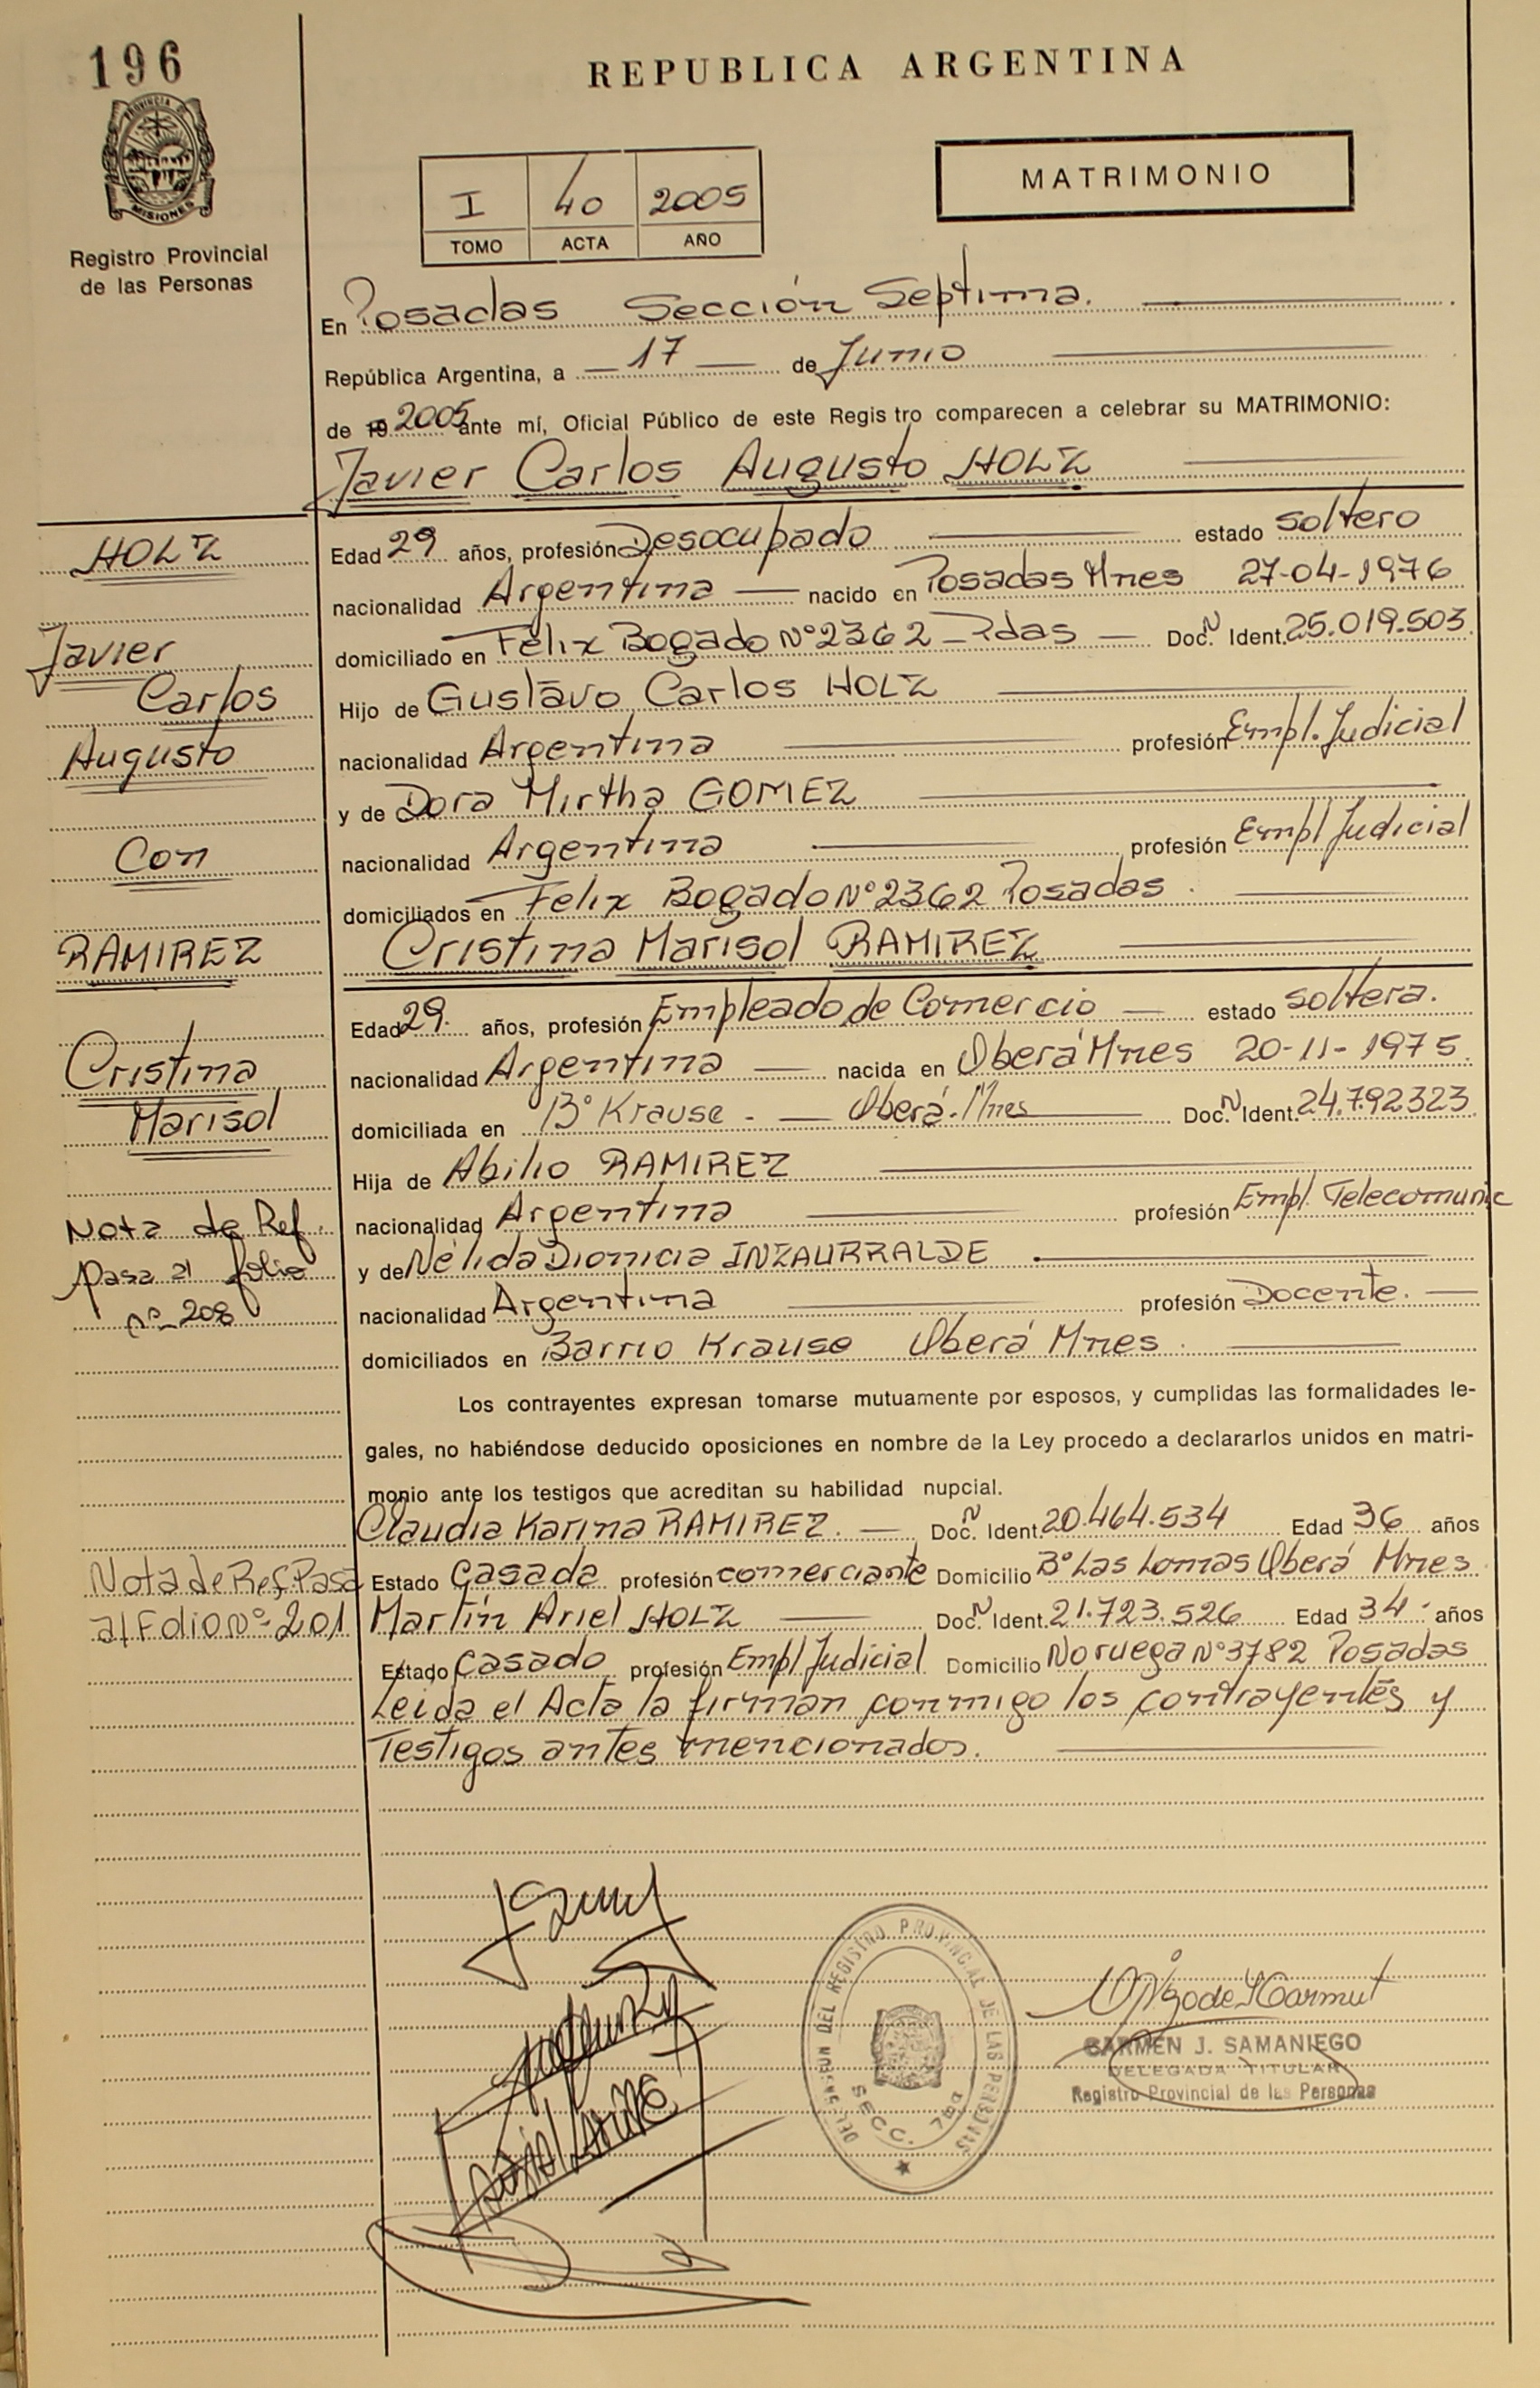 196
REPUBLICA ARGENTINA
PROVINCIA DE
MISIONES
Registro Provincial
de las Personas
I 40 2005
TOMO ACTA AÑO
MATRIMONIO
En Posadas Sección Septima.
República Argentina, a 17 de Junio
de 19 2005 ante mí, Oficial Público de este Regis tro comparecen a celebrar su MATRIMONIO:
Javier Carlos Augusto HOLZ
HOLZ
Javier
Carlos
Augusto
Con
RAMIREZ
Cristina
Marisol
Nota de Ref.
Pasa al folio
nº 208
Nota de Ref. Pasa
al Folio Nº 201
Edad 29 años, profesión Desocupado estado soltero
nacionalidad Argentina nacido en Posadas Mnes 27-04-1976
domiciliado en Felix Bogado Nº 2362 - Pdas Doc. N Ident. 25.019.503
Hijo de Gustavo Carlos HOLZ
nacionalidad Argentina profesión Empl. Judicial
y de Dora Mirtha GOMEZ
nacionalidad Argentina profesión Empl Judicial
domiciliados en Felix Bogado Nº 2362 Posadas.
Cristina Marisol RAMIREZ
Edad 29. años, profesión Empleado de Comercio estado soltera.
nacionalidad Argentina nacida en Oberá Mnes 20-11-1975.
domiciliada en Bº Krause - Oberá - Mnes Doc. N Ident. 24.792323
Hija de Abilio RAMIREZ
nacionalidad Argentina profesión Empl. Telecomunic
y de Nélida Dionicia INZAURRALDE
nacionalidad Argentina profesión Docente.
domiciliados en Barrio Krause Oberá Mnes.
Los contrayentes expresan tomarse mutuamente por esposos, y cumplidas las formalidades le-
gales, no habiéndose deducido oposiciones en nombre de la Ley procedo a declararlos unidos en matri-
monio ante los testigos que acreditan su habilidad nupcial.
Claudia Karina RAMIREZ. Doc. N Ident. 20.464.534 Edad 36 años
Estado Casada profesión comerciante Domicilio Bº Las Lomas Oberá Mnes
Martín Ariel HOLZ Doc. N Ident. 21.723.526 Edad 34 años
Estado Casado profesión Empl Judicial Domicilio Noruega Nº 3782 Posadas
Leida el Acta la firman conmigo los contrayentes y
Testigos antes mencionados.
DEL REGISTRO PROVINCIAL DE LAS PERSONAS
SECC. 7
CARMEN J. SAMANIEGO
DELEGADA TITULAR
Registro Provincial de las Personas